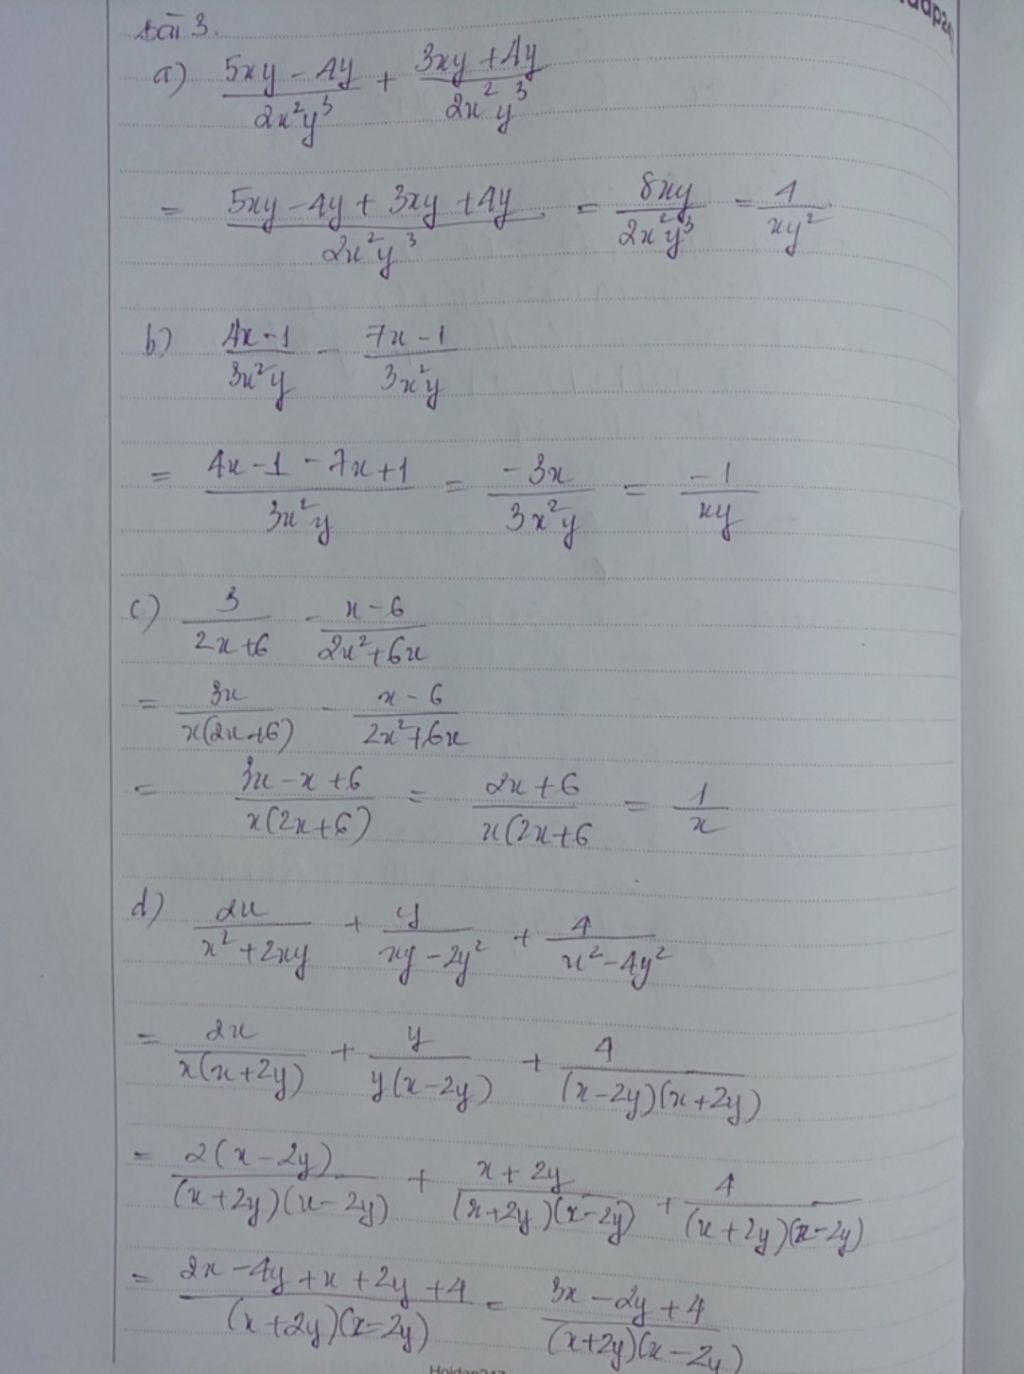 Bài 3.
a) \frac{5xy - 4y}{2x^2y^3} + \frac{3xy + 4y}{2x^2y^3}
= \frac{5xy - 4y + 3xy + 4y}{2x^2y^3} = \frac{8xy}{2x^2y^3} = \frac{4}{xy^2}
b) \frac{4x - 1}{3x^2y} - \frac{7x - 1}{3x^2y}
= \frac{4x - 1 - 7x + 1}{3x^2y} = \frac{-3x}{3x^2y} = \frac{-1}{xy}
c) \frac{3}{2x + 6} - \frac{x - 6}{2x^2 + 6x}
= \frac{3x}{x(2x + 6)} - \frac{x - 6}{2x^2 + 6x}
= \frac{3x - x + 6}{x(2x + 6)} = \frac{2x + 6}{x(2x + 6} = \frac{1}{x}
d) \frac{2x}{x^2 + 2xy} + \frac{y}{xy - 2y^2} + \frac{4}{x^2 - 4y^2}
= \frac{2x}{x(x + 2y)} + \frac{y}{y(x - 2y)} + \frac{4}{(x - 2y)(x + 2y)}
= \frac{2(x - 2y)}{(x + 2y)(x - 2y)} + \frac{x + 2y}{(x + 2y)(x - 2y)} + \frac{4}{(x + 2y)(x - 2y)}
= \frac{2x - 4y + x + 2y + 4}{(x + 2y)(x - 2y)} = \frac{3x - 2y + 4}{(x + 2y)(x - 2y)}